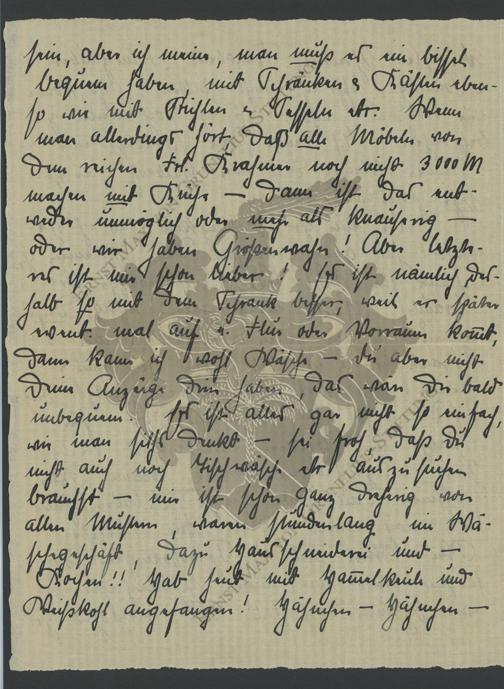 sein, aber ich meine, man muß es ein bissel
bequem haben, mit Schränken & Kästen eben-
so wie mit Stühlen & Sesseln etc. Wenn
man allerdings hört, daß alle Möbeln von
dem reichen Frl. Krahmer noch nicht 3000 M
machen mit Küche — dann ist das ent-
weder unmöglich oder mehr als knauserig —
oder wir haben Größenwahn! Aber letzte-
res ist mir schon lieber! Es ist nämlich des-
halb so mit dem Schrank besser, weil er später
event. mal auf d. Flur oder Vorraum kommt,
dann kann ich wohl Wäsche — du aber nicht
Deine Anzüge drin haben, das wär Dir bald
unbequem. Es ist alles gar nicht so einfach,
wie man sichs denkt — sei froh, daß Du
nicht auch noch Tischwäsche etc auszusuchen
brauchst — mir ist schon ganz drehrig von
allen Mustern, waren stundenlang im Wä-
schegeschäft, dazu Hausschneiderei und —
Kochen!! Hab heut mit Hammelkeule und
Weißkohl angefangen! Hähnchen — Hähnchen —